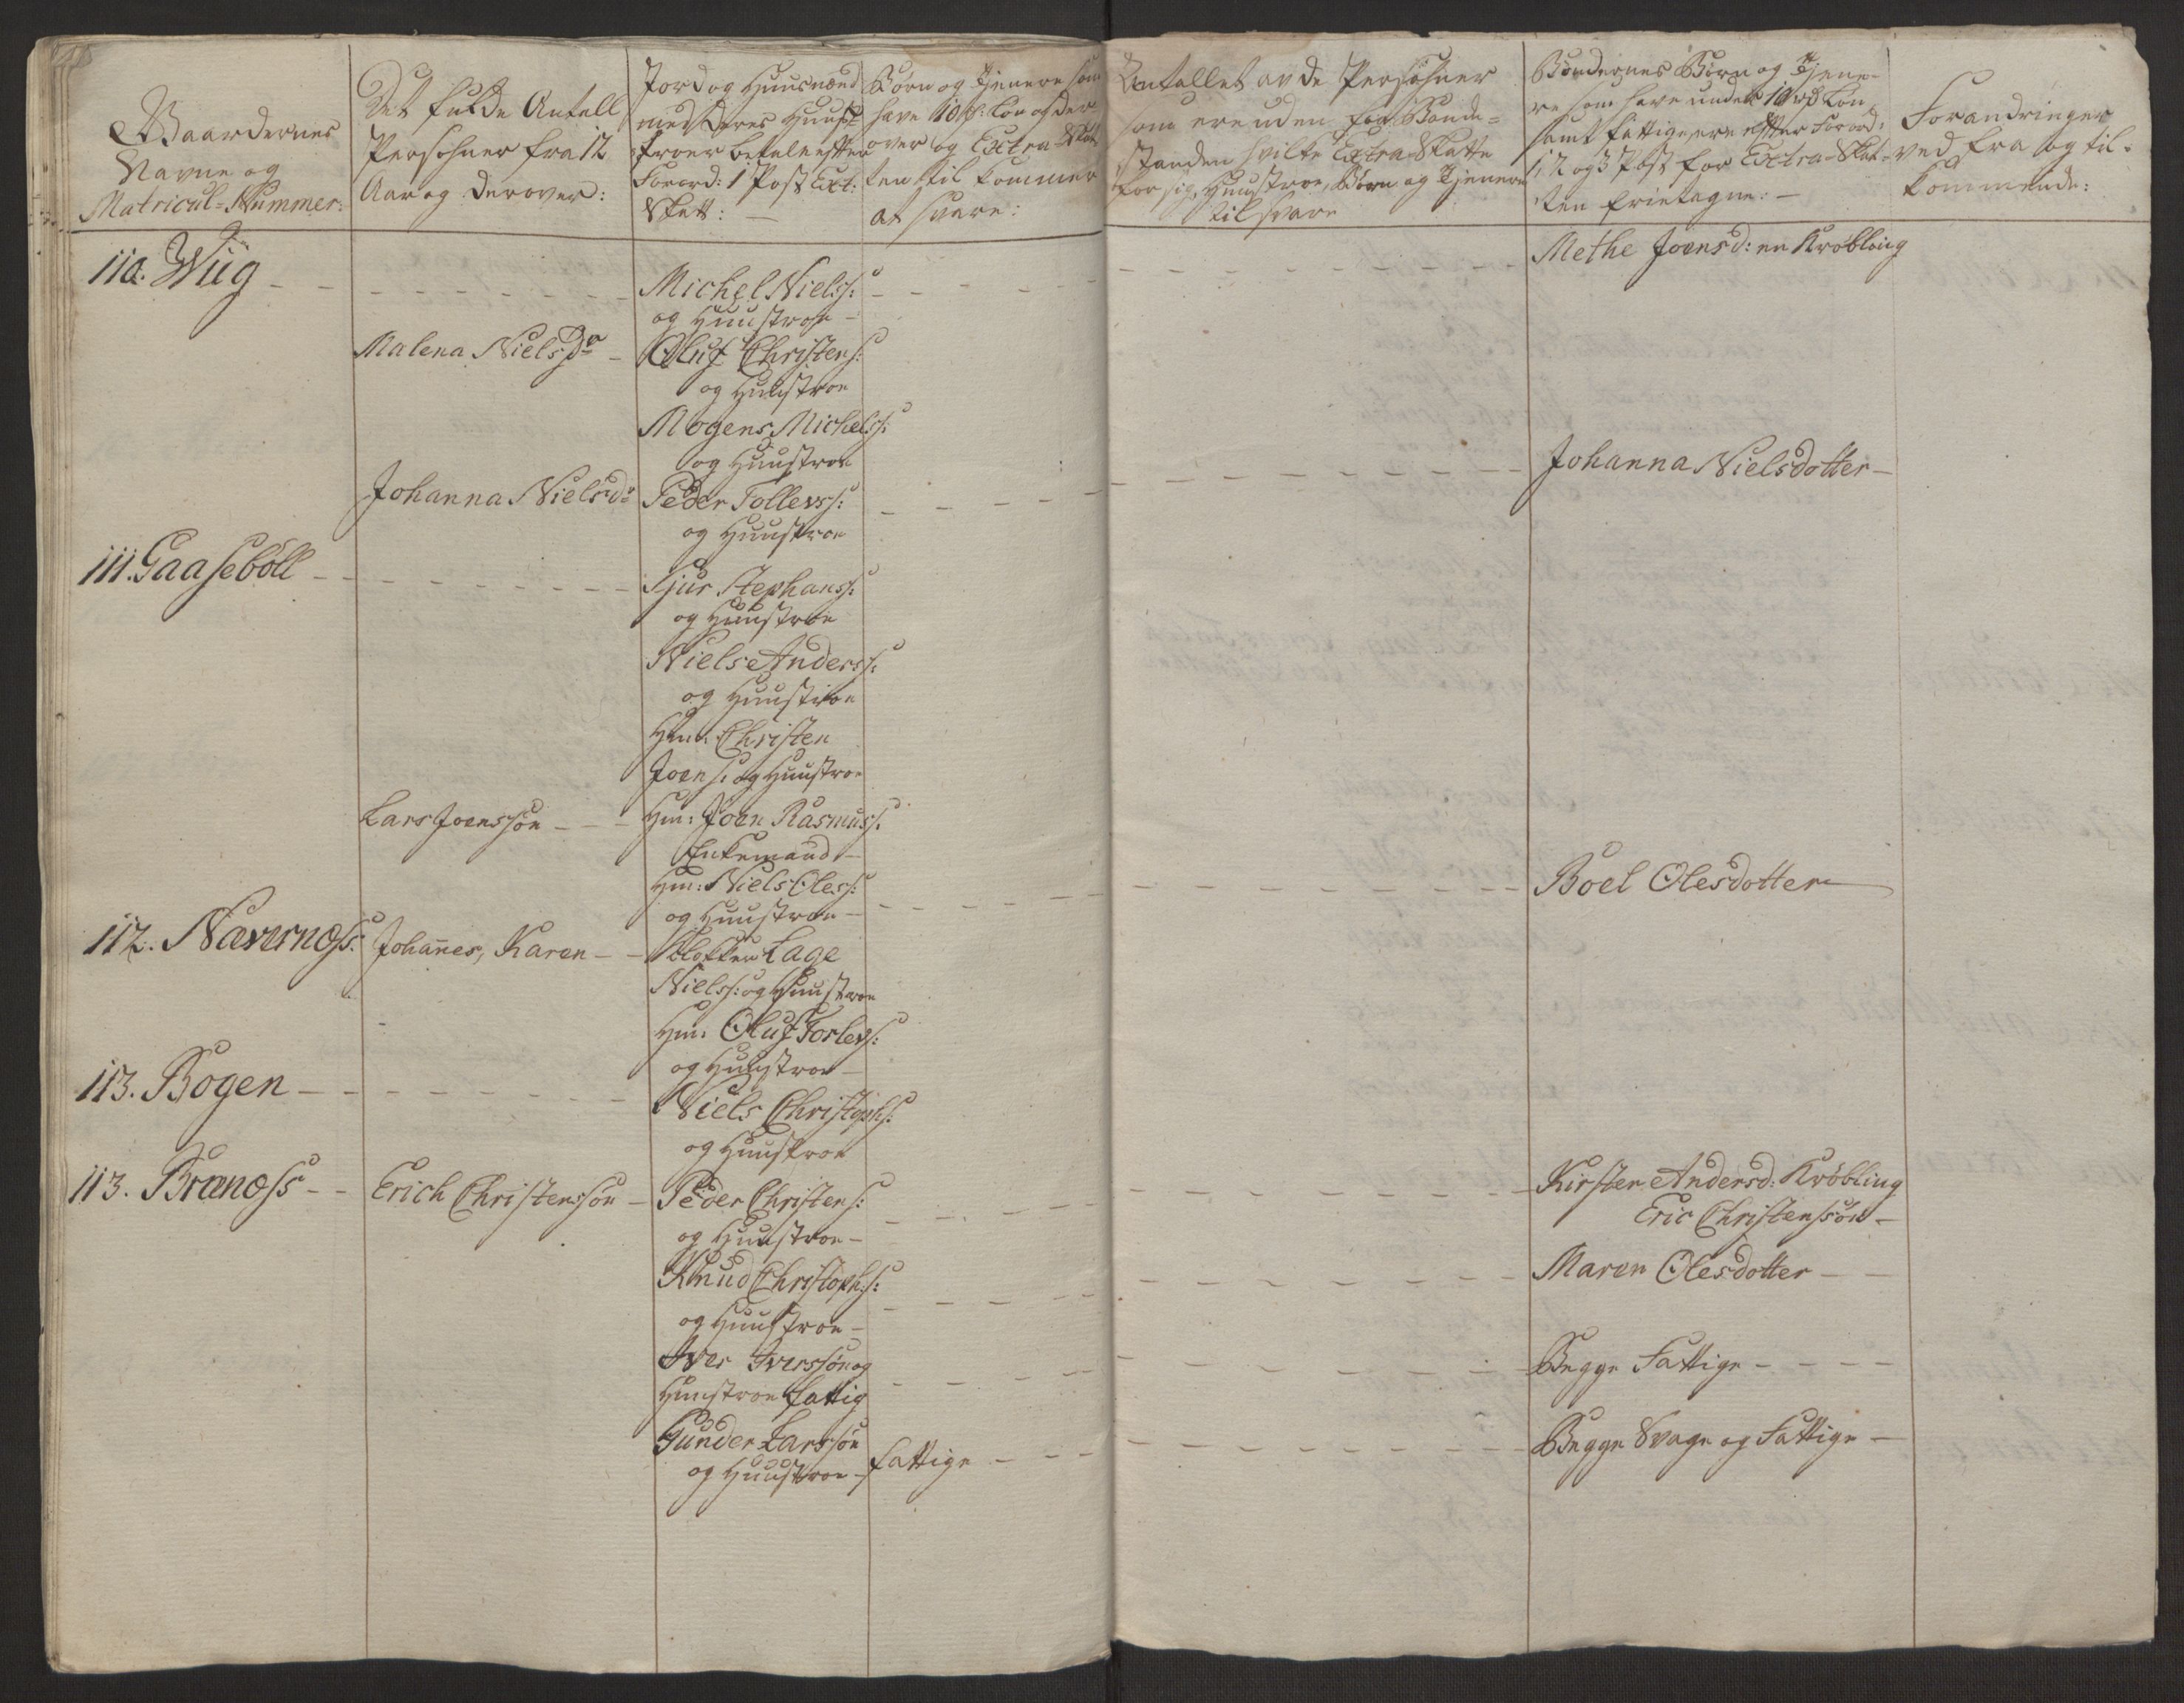 Gaardernes
Navne og
Matricul-Nummer:
Det fulde Antall
Persohner fra 12
Aar og derover:
Jord og Huusmænd
med deres Huus-
troer betale efter
Forord: 1 Post Ext:
Skatt: —
Børn og Tjenere som
have 10 rd: Løn og der
over og Extra Skat
ten til kommer
at svare:
Antallet av de Persohner
som ere uden for Bonde-
standen hvilke Extra Skatte
for sig, Huustroe, Børn og Tjenere
til svare
Bøndernes Børn og Tjene-
re som have under 10 rd Løn
samt fattige, ere efter Forord:
1, 2 og 3 Post for Extra-Skat-
ten frietagne: —
Forandringer
ved fra og til-
kommende:
110. Wiig
Michel Nielss:
og Huustroe —
Methe Joensd: en Krøbling
Malena Nielsdr —
Oluf Christens:
og Huustroe
Mogens Michelss:
og Huustroe
Johanna Nielsdotter —
Johanna Nielsdr
Peder Tollevss:
og Huustroe
111. Gaasebøll
Sjur Stephanss:
og Huustroe
Niels Anderss:
og Huustroe
Hm: Christen
Joens: og Huustroe
Lars Joenssøn — —
Hm: Joen Rasmuss:
Enkemand —
Hm: Niels Oless:
og Huustroe —
Boel Olesdotter
112. Nævernæss:
Johanes, Karen — —
Klokker Lage
Nielss: og Huustroe
Hm: Oluf Torlevs:
og Huustroe —
113. Bogen
Niels Christophs:
og Huustroe
113. Brænæss — —
Erich Christenssøn —
Peder Christens:
og Huustroe —
Kirsten Andersd: Krøbling
Eric Christenssøn —
Knud Christophs:
og Huustroe —
Maren Olesdotter — —
Iver Iverssøn og
Huustroe fattig
Begge Fattige — — — —
Gunder Larssøn
og Huustroe —
fattige — — —
Begge Svage og Fattige —